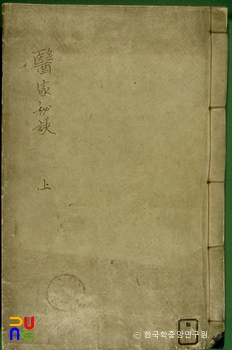 醫家秘訣
上
ⓒ 한국학중앙연구원